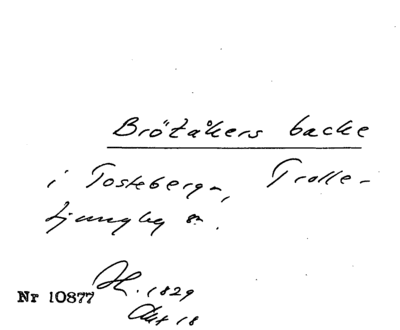 Brötåkers backe
i Tosteberga, Trolle-
Ljungby sn.
Nr 10877 H. 1829
Akt 18